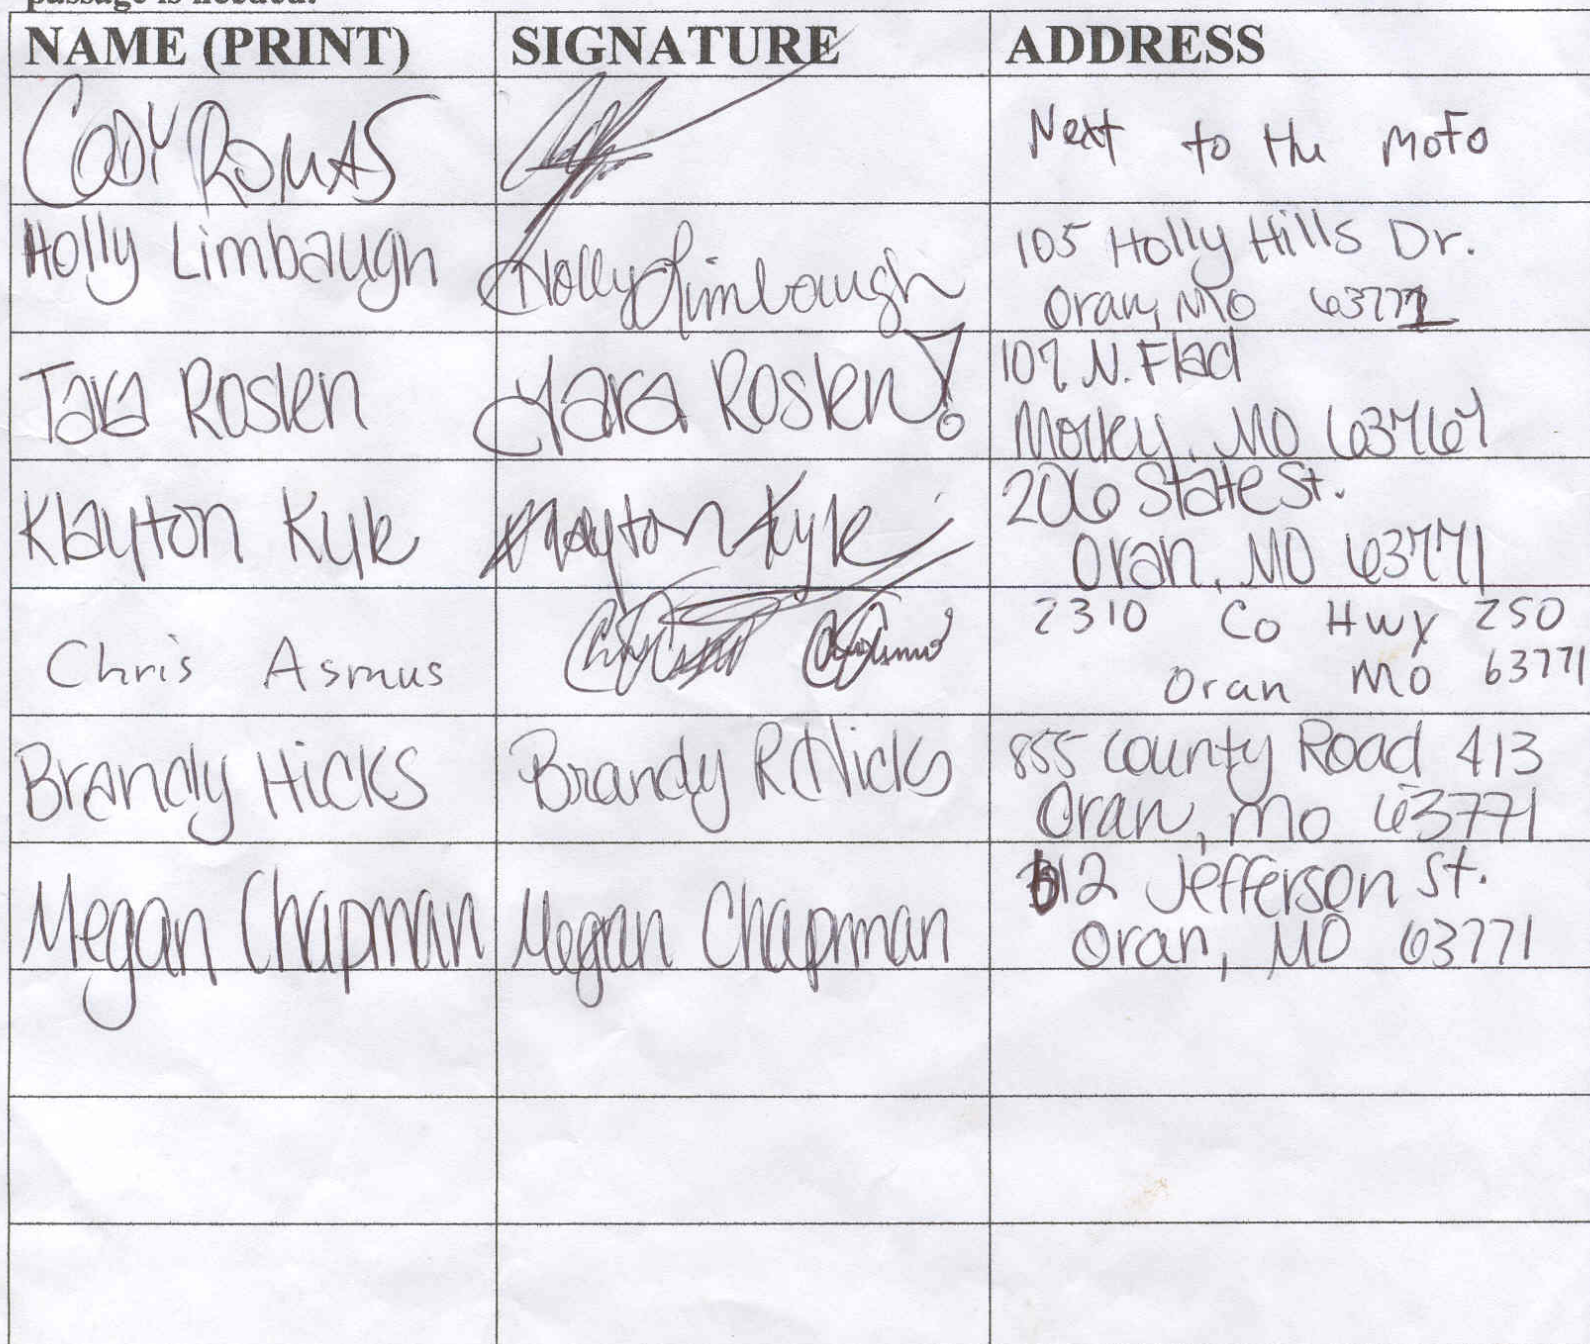 passage is needed.
NAME (PRINT) SIGNATURE ADDRESS
CODY ROMAS Next to the MoFo
Holly Limbaugh Holly Limbaugh 105 Holly Hills Dr.
Oran, MO 63771
Tara Roslen Tara Roslen! 107 N. Flad
Morley, MO 63767
Klayton Kyle Klayton Kyle 206 State St.
Oran, MO 63771
Chris Asmus 2310 Co Hwy 250
Oran Mo 63771
Brandy Hicks Brandy R Hicks 855 County Road 413
Oran, Mo 63771
Megan Chapman Megan Chapman 312 Jefferson St.
Oran, MO 63771